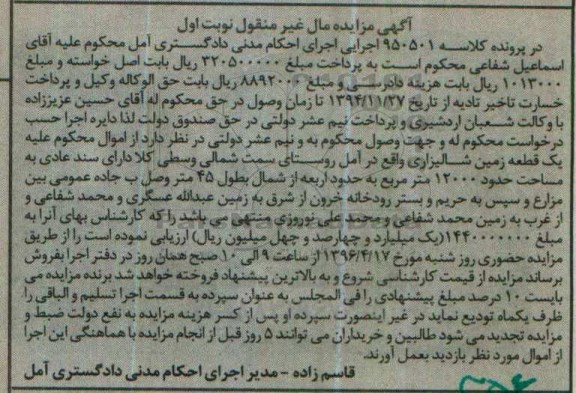 آگهی مزایده مال غیر منقول نوبت اول
در پرونده کلاسه ۹۵۰۵۰۱ اجرایی اجرای احکام مدنی دادگستری آمل محکوم علیه آقای
اسماعیل شفاعی محکوم است به پرداخت مبلغ ۳۲۰۵۰۰۰۰۰ ریال بابت اصل خواسته و مبلغ
۱۰۱۳۰۰۰ ریال بابت هزینه دادرسی و مبلغ ۸۸۹۲۰۰۰ ریال بابت حق الوکاله وکیل و پرداخت
خسارت تاخیر تادیه از تاریخ ۱۳۹۴/۱۱/۲۷ تا زمان وصول در حق محکوم له آقای حسین عزیززاده
با وکالت شعبان اردشیری و پرداخت نیم عشر دولتی در حق صندوق دولت لذا دایره اجرا حسب
درخواست محکوم له و جهت وصول محکوم به و نیم عشر دولتی در نظر دارد از اموال محکوم علیه
یک قطعه زمین شالیزاری واقع در آمل روستای سمت شمالی وسطی کلا دارای سند عادی به
مساحت حدود ۱۲۰۰۰ متر مربع به حدود اربعه از شمال بطول ۴۵ متر وصل ب جاده عمومی بین
مزارع و سپس به حریم و بستر رودخانه خرون از شرق به زمین عبدالله عسگری و محمد شفاعی و
از غرب به زمین محمد شفاعی و محمد علی نوروزی منتهی می باشد را که کارشناس بهای آنرا به
مبلغ ۱۴۴۰۰۰۰۰۰۰(یک میلیارد و چهارصد و چهل میلیون ریال) ارزیابی نموده است را از طریق
مزایده حضوری روز شنبه مورخ ۱۳۹۶/۴/۱۷ از ساعت ۹ الی ۱۰ صبح همان روز در دفتر اجرا بفروش
برساند مزایده از قیمت کارشناسی شروع و به بالاترین پیشنهاد فروخته خواهد شد برنده مزایده می
بایست ۱۰ درصد مبلغ پیشنهادی را فی المجلس به عنوان سپرده به قسمت اجرا تسلیم و الباقی را
ظرف یکماه تودیع نماید در غیر اینصورت سپرده او پس از کسر هزینه مزایده به نفع دولت ضبط و
مزایده تجدید می شود طالبین و خریداران می توانند ۵ روز قبل از انجام مزایده با هماهنگی این اجرا
از اموال مورد نظر بازدید بعمل آورند.
قاسم زاده - مدیر اجرای احکام مدنی دادگستری آمل